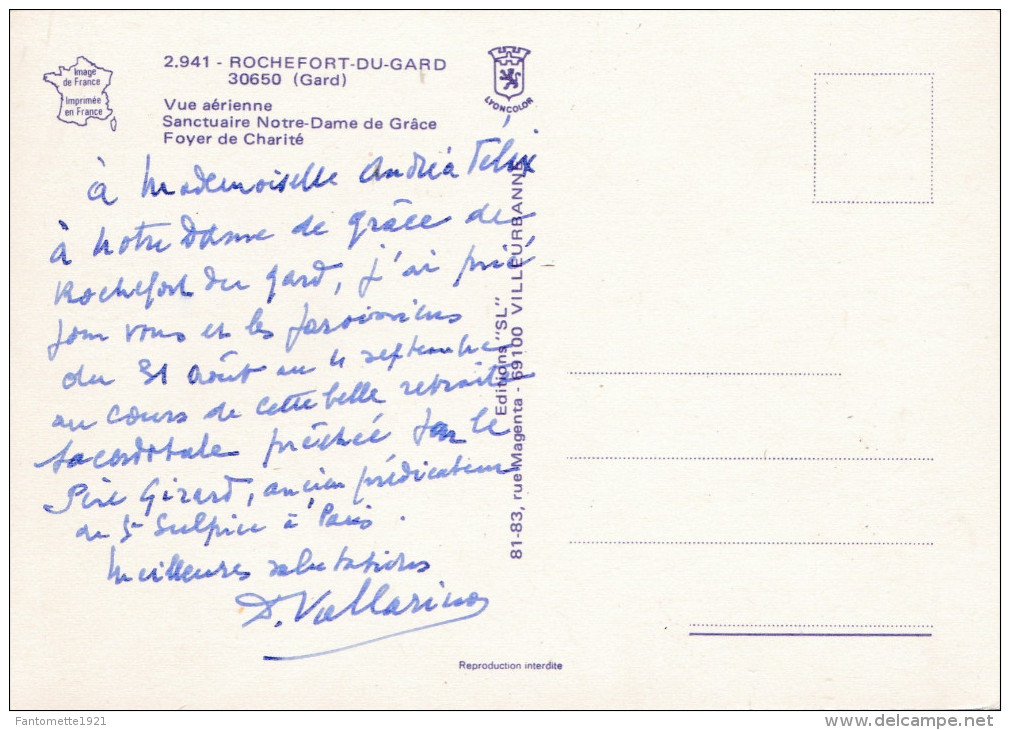 Image
de France
Imprimée
en France
2.941 - ROCHEFORT-DU-GARD
30650 (Gard)
Vue aérienne
Sanctuaire Notre-Dame de Grâce
Foyer de Charité
LYONCOLOR
à Mademoiselle Andréa Félix
à Notre Dame de grâce de
Rochefort du gard, j'ai prié
pour vous et les paroissiens
du 31 août au 4 septembre
au cours de cette belle retraite
sacerdotale prêchée par le
Père Girard, ancien prédicateur
de St Sulpice à Paris.
Meilleures salutations
D. Vallarino
Editions "SL"
81-83, rue Magenta - 69100 VILLEURBANNE
Reproduction interdite
Fantomette1921
delcampe.net